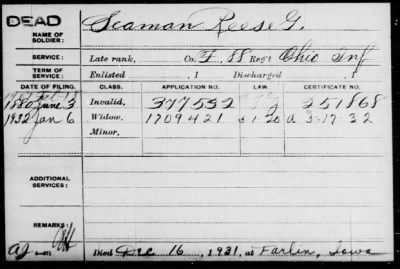 DEAD
NAME OF SOLDIER: Seaman Reese G.
SERVICE: Late rank, Co. F, 88 Reg't Ohio Inf
TERM OF SERVICE: Enlisted , 1 Discharged , 1
DATE OF FILING. CLASS. APPLICATION NO. LAW. CERTIFICATE NO.
1880 June 3 Invalid, 377532 351868
1932 Jan 6 Widow, 1709421 5-1-20 a 3-17-32
Minor,
ADDITIONAL SERVICES:
REMARKS:
Died Dec 16, 1931, at Farlin, Iowa